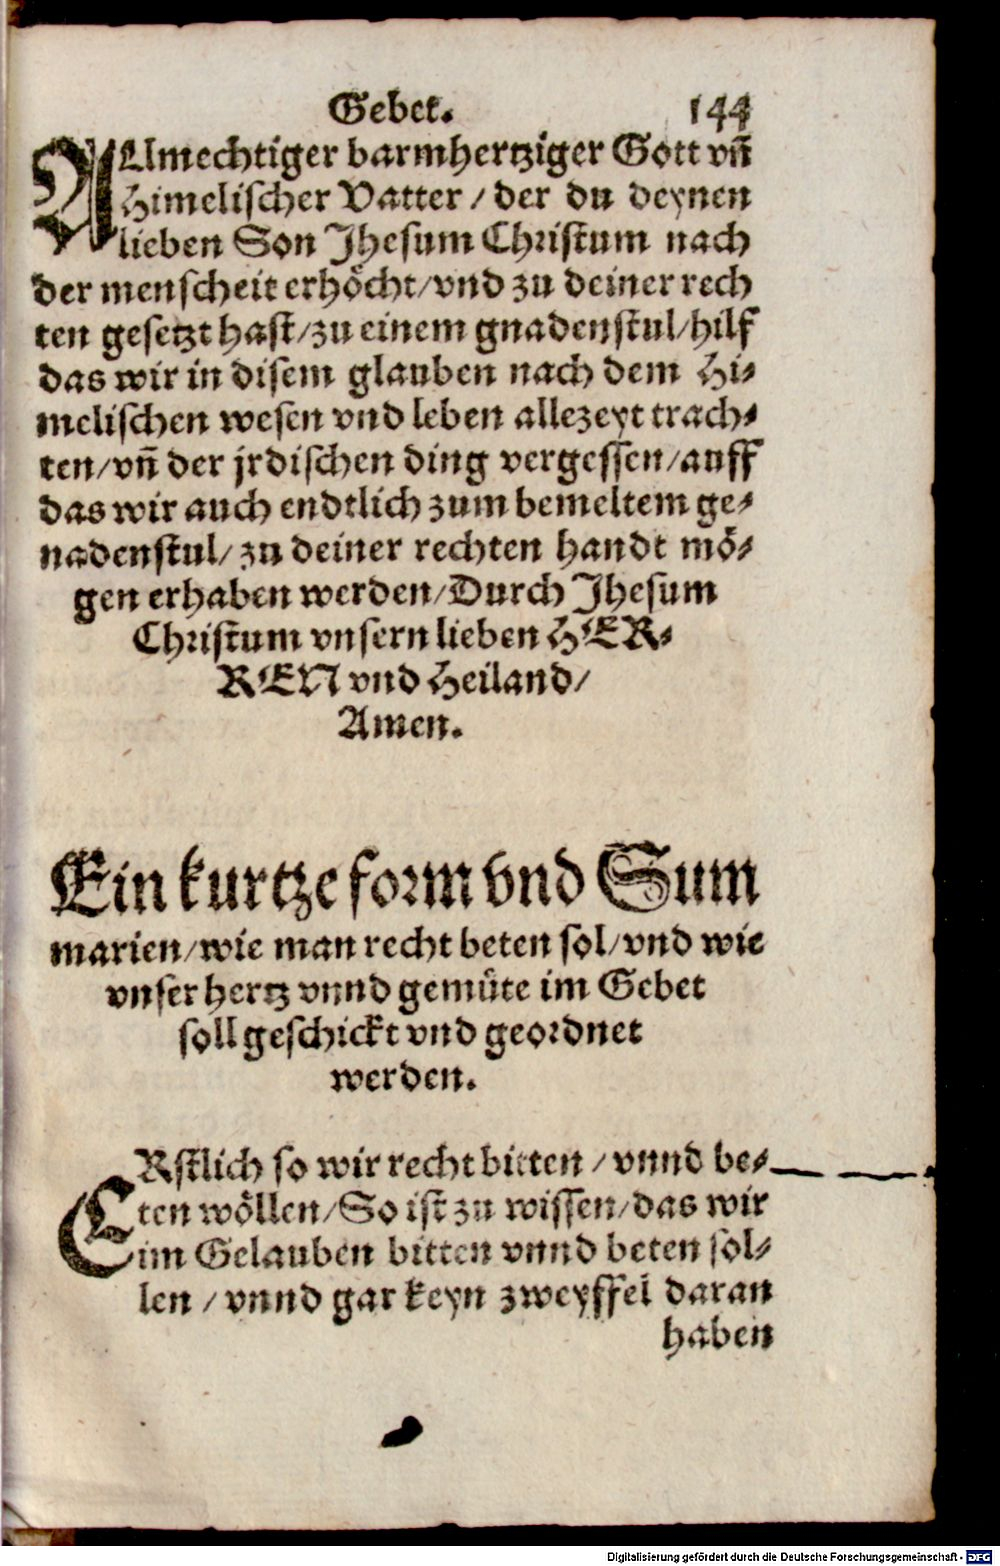 Gebet. 144
ALlmechtiger barmhertziger Gott vn̄
Himelischer Vatter / der du deynen
lieben Son Jhesum Christum nach
der menscheit erhöcht/vnd zu deiner rech
ten gesetzt hast/zu einem gnadenstul/hilf
das wir in disem glauben nach dem Hi-
melischen wesen vnd leben allezeyt trach-
ten/vn̄ der jrdischen ding vergessen/auff
das wir auch endtlich zum bemeltem ge-
nadenstul/ zu deiner rechten handt mö-
gen erhaben werden/Durch Jhesum
Christum vnsern lieben HER-
REN vnd Heiland/
Amen.
Ein kurtze form vnd Sum
marien/wie man recht beten sol/vnd wie
vnser hertz vnnd gemüte im Gebet
soll geschickt vnd geordnet
werden.
ERstlich so wir recht bitten / vnnd be-
ten wöllen/So ist zu wissen/das wir
im Gelauben bitten vnnd beten sol-
len / vnnd gar keyn zweyffel daran
haben
Digitalisierung gefördert durch die Deutsche Forschungsgemeinschaft - DFG